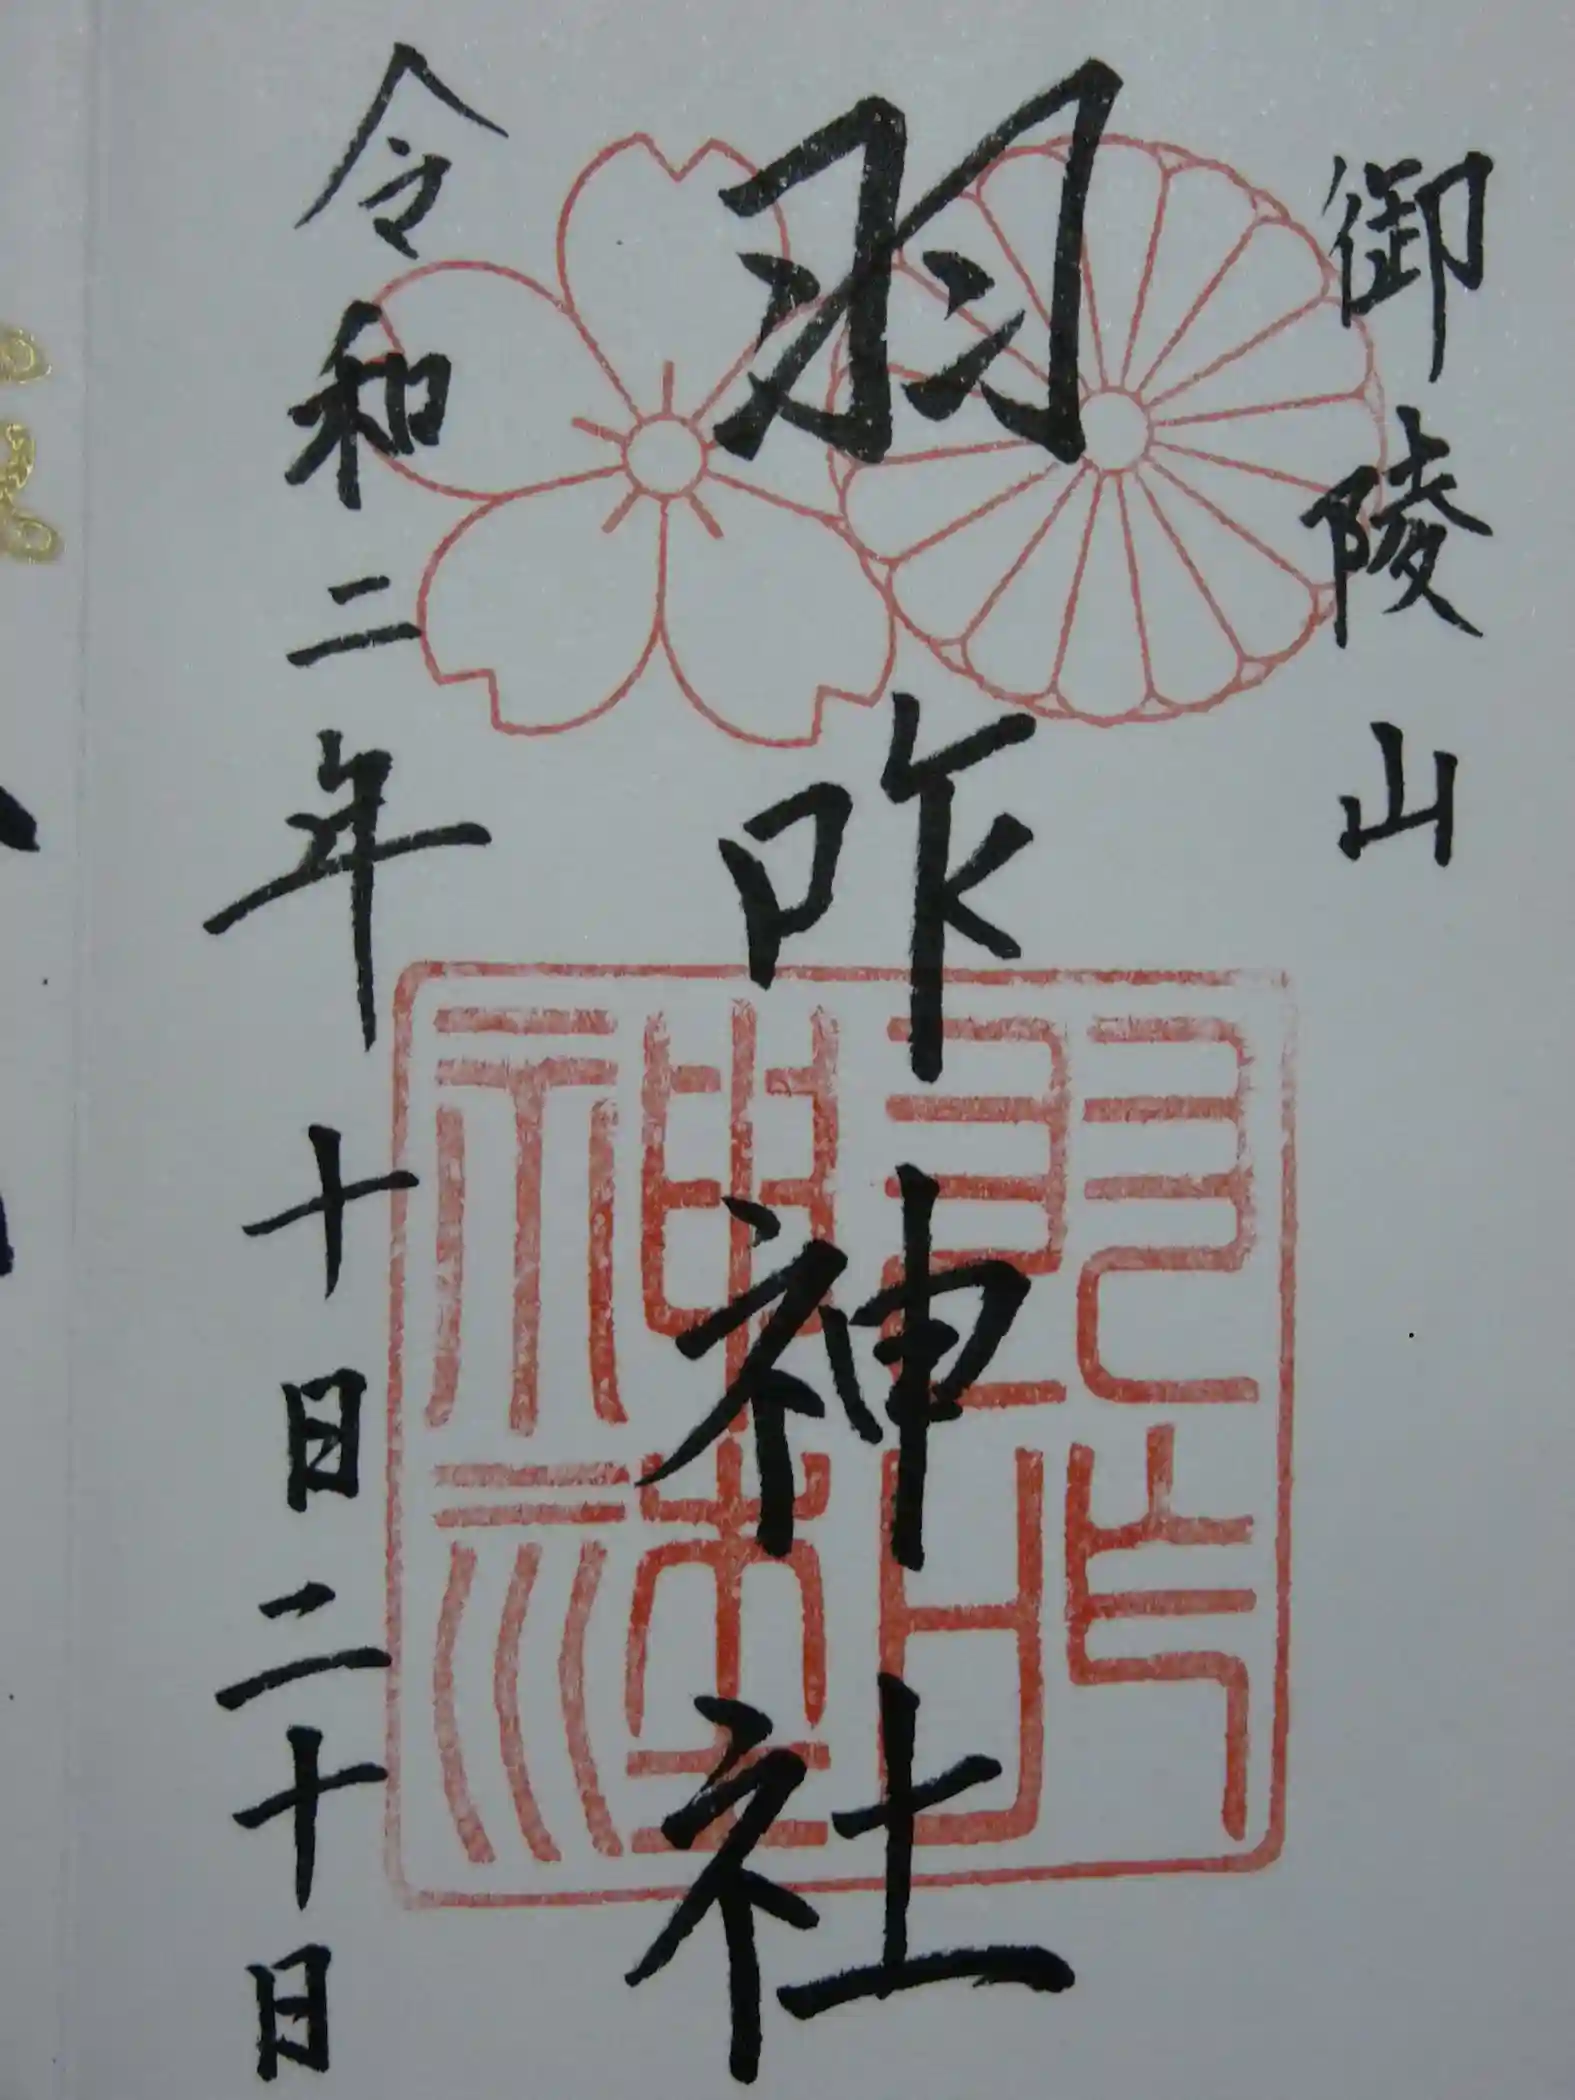 御陵山
羽咋神社
令和二年十月二十日